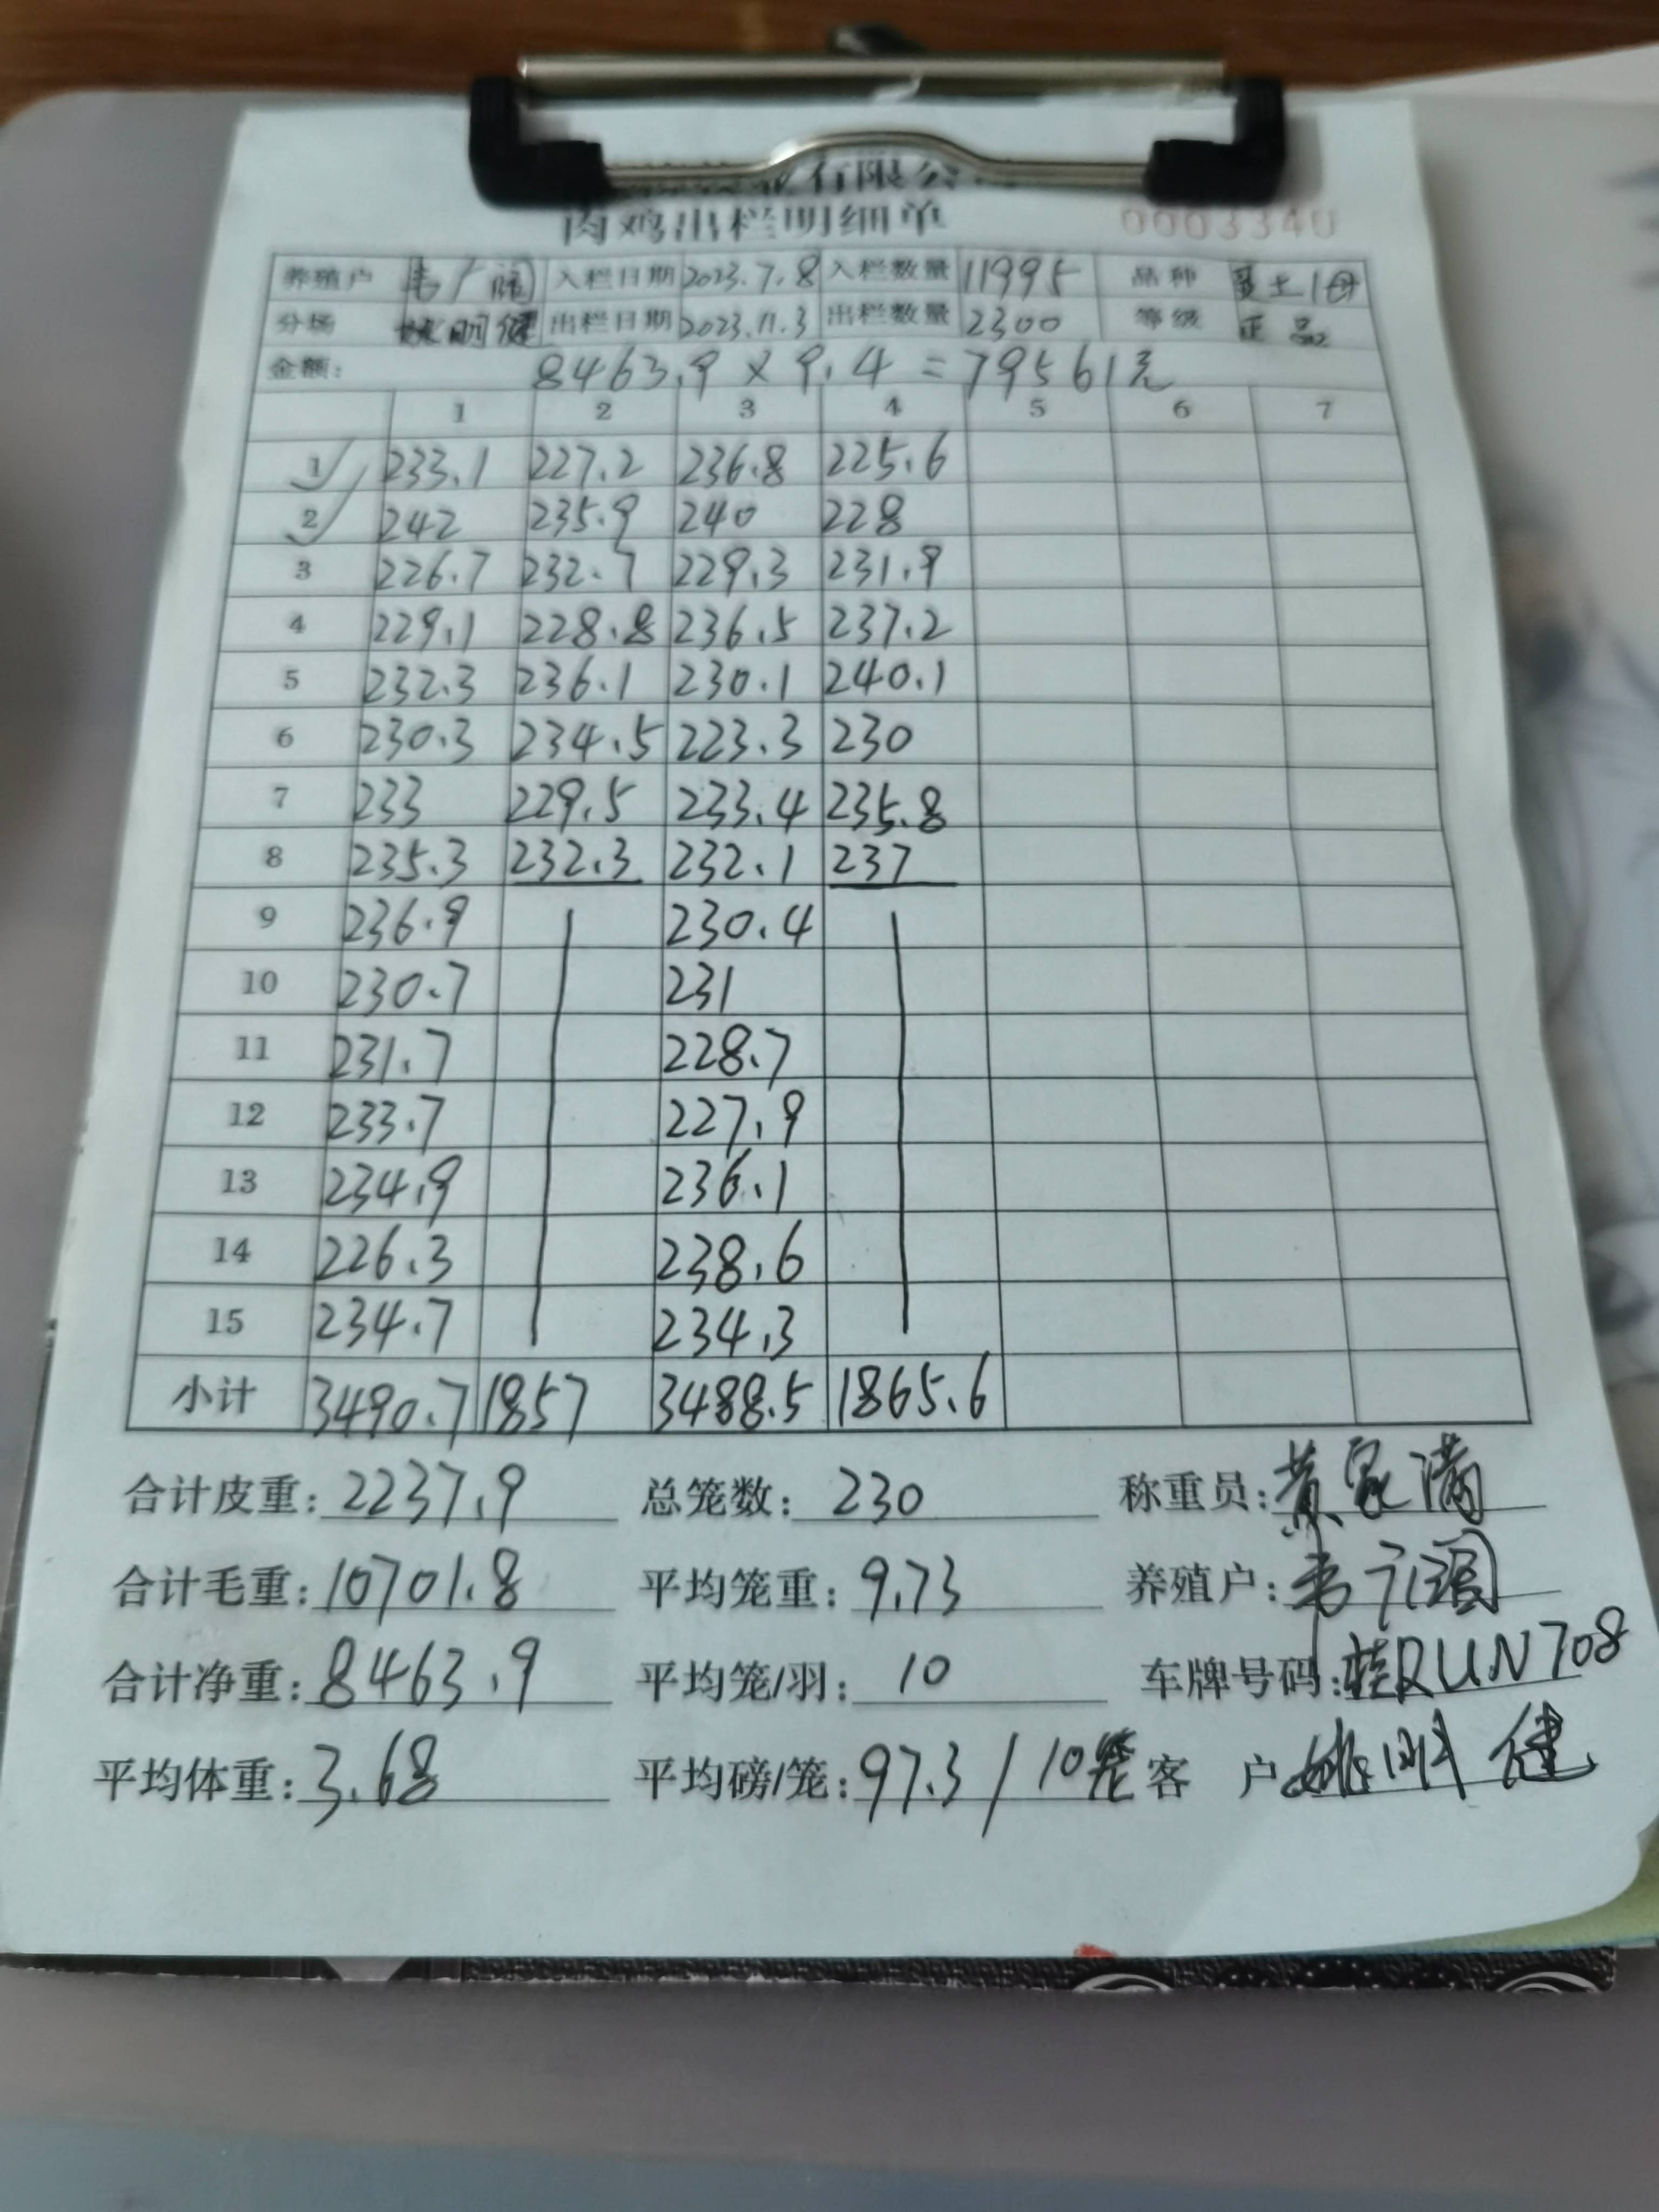 业有限公
肉鸡出栏明细单 0003340
养殖户 韦广阔 入栏日期 2023.7.8 入栏数量 11995 品种 土1母
分场 姚明健 出栏日期 2023.11.3 出栏数量 2300 等级 正品
金额: 8463.9 × 9.4 = 79561元
1 2 3 4 5 6 7
1 233.1 227.2 236.8 225.6
2 242 235.9 240 228
3 226.7 232.7 229.3 231.9
4 229.1 228.8 236.5 237.2
5 232.3 236.1 230.1 240.1
6 230.3 234.5 223.3 230
7 233 229.5 233.4 235.8
8 235.3 232.3 232.1 237
9 236.9 230.4
10 230.7 231
11 231.7 228.7
12 233.7 227.9
13 234.9 236.1
14 226.3 238.6
15 234.7 234.3
小计 3490.7 1857 3488.5 1865.6
合计皮重: 2237.9 总笼数: 230 称重员: 黄家满
合计毛重: 10701.8 平均笼重: 9.73 养殖户: 韦广阔
合计净重: 8463.9 平均笼/羽: 10 车牌号码: 桂RUN708
平均体重: 3.68 平均磅/笼: 97.3/10笼 客 户 姚明健